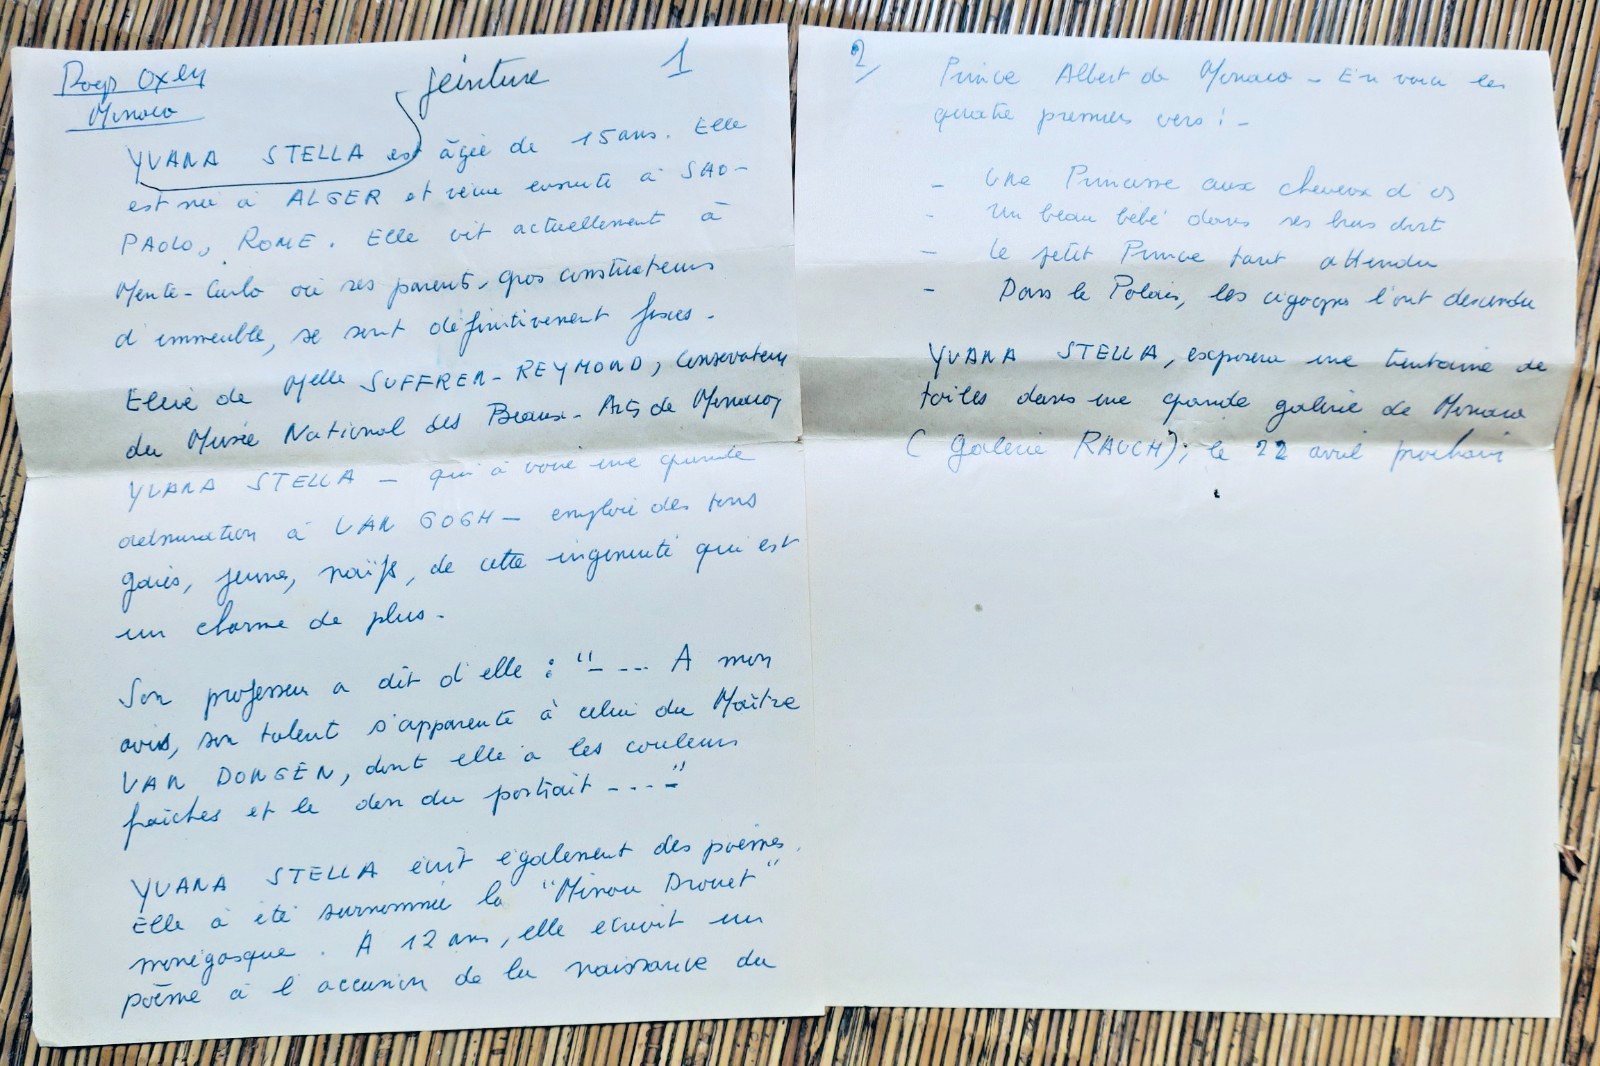 Roger Oxley
Monaco
peinture
1
YVANA STELLA est âgée de 15 ans. Elle
est née à ALGER et vécue ensuite à SAO-
PAOLO, ROME. Elle vit actuellement à
Monte-Carlo où ses parents, gros constructeurs
d'immeuble, se sont définitivement fixés.
Elève de Melle SUFFREN-REYMOND, Conservateur
du Musée National des Beaux-Arts de Monaco,
YVANA STELLA - qui à voué une grande
admiration à VAN GOGH - emploie des tons
gaies, jeunes, naïfs, de cette ingénuité qui est
un charme de plus.
Son professeur a dit d'elle : "- --- A mon
avis, son talent s'apparente à celui du Maître
VAN DONGEN, dont elle a les couleurs
fraîches et le don du portrait ---- "
YVANA STELLA écrit également des poèmes.
Elle à été surnommée la "Minou Drouet"
monégasque. A 12 ans, elle écrivit un
poème à l'occasion de la naissance du
2/
Prince Albert de Monaco - En voici les
quatre premiers vers : -
- Une Princesse aux cheveux d'os
- Un beau bébé dans ses bras dort
- Le petit Prince tant attendu
- Dans le Palais, les cigognes l'ont descendu
YVANA STELLA, exposera une trentaine de
toiles dans une grande galerie de Monaco
(Galerie RAUCH); le 22 avril prochain